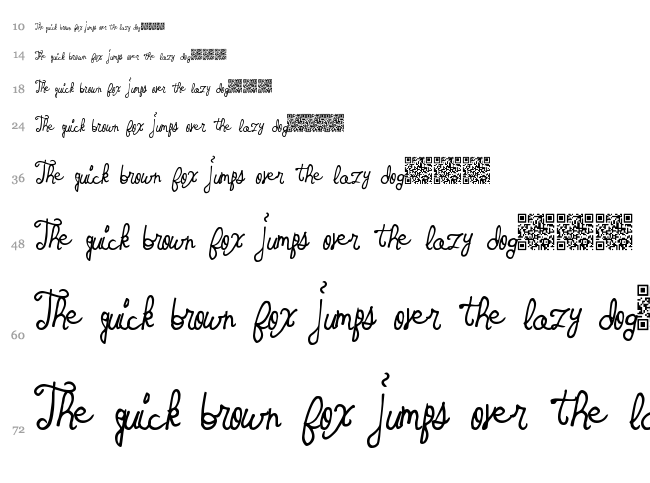 10 The quick brown fox jumps over the lazy dog
14 The quick brown fox jumps over the lazy dog
18 The quick brown fox jumps over the lazy dog
24 The quick brown fox jumps over the lazy dog
36 The quick brown fox jumps over the lazy dog
48 The quick brown fox jumps over the lazy dog
60 The quick brown fox jumps over the lazy dog
72 The quick brown fox jumps over the la